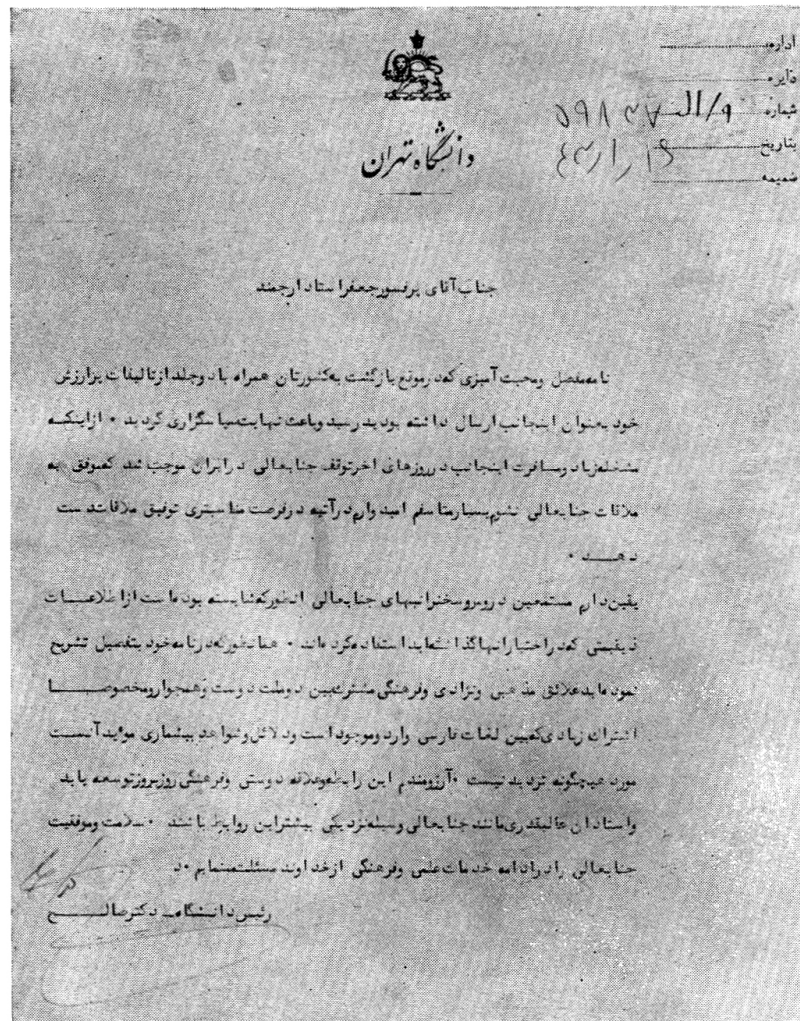 اداره
دایره
شماره ۵۹۸۳۷ و/ال
بتاریخ ۴۳/۱/۱۶
ضمیمه
دانشگاه تهران
جناب آقای پرفسور جعفر استاد ارجمند
نامه مفصل ومحبت آمیزی که در موقع بازگشت به کشورتان همراه با دو جلد از تالیفات پرارزش
خود بعنوان اینجانب ارسال داشته بودید رسید وباعث نهایت سپاسگزاری گردید ۰ ازاینکه
مشغله زیاد ومسافرت اینجانب در روزهای اخر توقف جنابعالی در ایران موجب شد که موفق به
ملاقات جنابعالی نشوم بسیار متاسفم امید وارم در آتیه در فرصت مناسبتری توفیق ملاقات دست
دهد ۰
یقین دارم مستمعین دروس وسخنرانیهای جنابعالی انطورکه شایسته بوده است از اطلاعات
ذیقیمتی که در اختیار انها گذاشته اید استفاده کرده اند ۰ همانطورکه در نامه خود بتفصیل تشریح
نموده اید علائق مذهبی ونژادی وفرهنگی مشترک بین دو ملت دوست وهمجوار ومخصوصا
اشتراک زیادی که بین لغات فارسی واردو موجود است ودلائل وشواهد بیشماری موید آنست
مورد هیچگونه تردید نیست ۰ آرزومندم این رابطه وعلاقه دوستی وفرهنگی روز بروز توسعه یابد
واستادان عالیقدری مانند جنابعالی وسیله نزدیکی بیشتر این روابط باشند ۰ سلامت وموفقیت
جنابعالی را در ادامه خدمات علمی وفرهنگی از خداوند مسئلت مینمایم ۰ د
رئیس دانشگاه ـ دکتر صالح